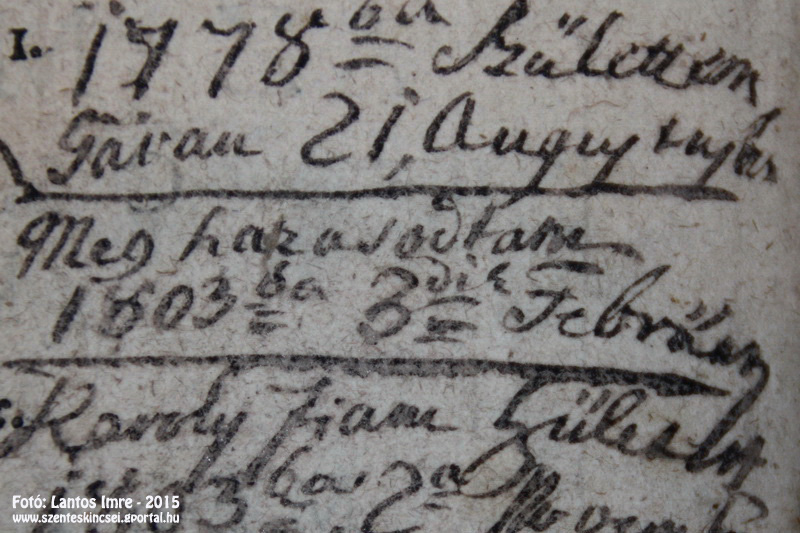 I.
1778 ba Születtem
Távau 21, Augustusban
Meg hazasodtam
1803 ba 3 dik Februári
Karoly fiam Születet
1803 ba 2 a Novemb
Fotó: Lantos Imre - 2015
www.szenteskincsei.gportal.hu